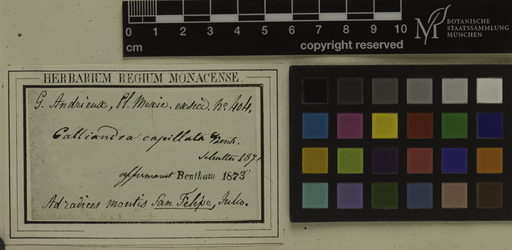 0 1 2 3 4 5 6 7 8 9 10
cm
copyright reserved
BOTANISCHE
STAATSSAMMLUNG
MÜNCHEN
HERBARIUM REGIUM MONACENSE.
G. Andrieux, Pl. Mexic. exsicc. No 404.
Calliandra capillata Benth.
Schultes 1871
affirmavit Bentham 1873
Ad radices montis San Felipe, Julio.